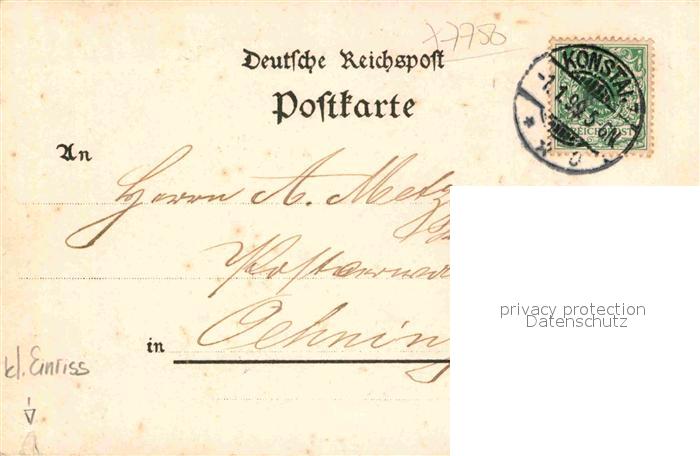 x7758
Deutsche Reichspost
Postkarte
KONSTANZ
REICHSPOST
An
Herrn A. Metz
in Oehning
kl. Einriss
privacy protection
Datenschutz